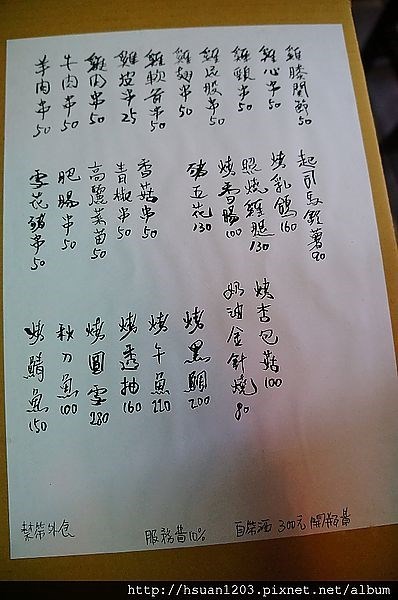 雞膝關節50
雞心串50
雞頸串50
雞屁股串50
雞翅串50
雞軟骨串50
雞皮串25
雞肉串50
牛肉串50
羊肉串50
起司馬鈴薯90
烤乳鴿160
照燒雞腿130
烤香腸100
豬五花130
香菇串50
青椒串50
高麗菜苗50
肥腸串50
雪花豬串50
烤杏包菇100
奶油金針燒80
烤黑鯛200
烤午魚220
烤透抽160
烤圓雪280
秋刀魚100
烤鯖魚150
禁帶外食
服務費10%
自帶酒 300元 開瓶費
http://hsuan1203.pixnet.net/album